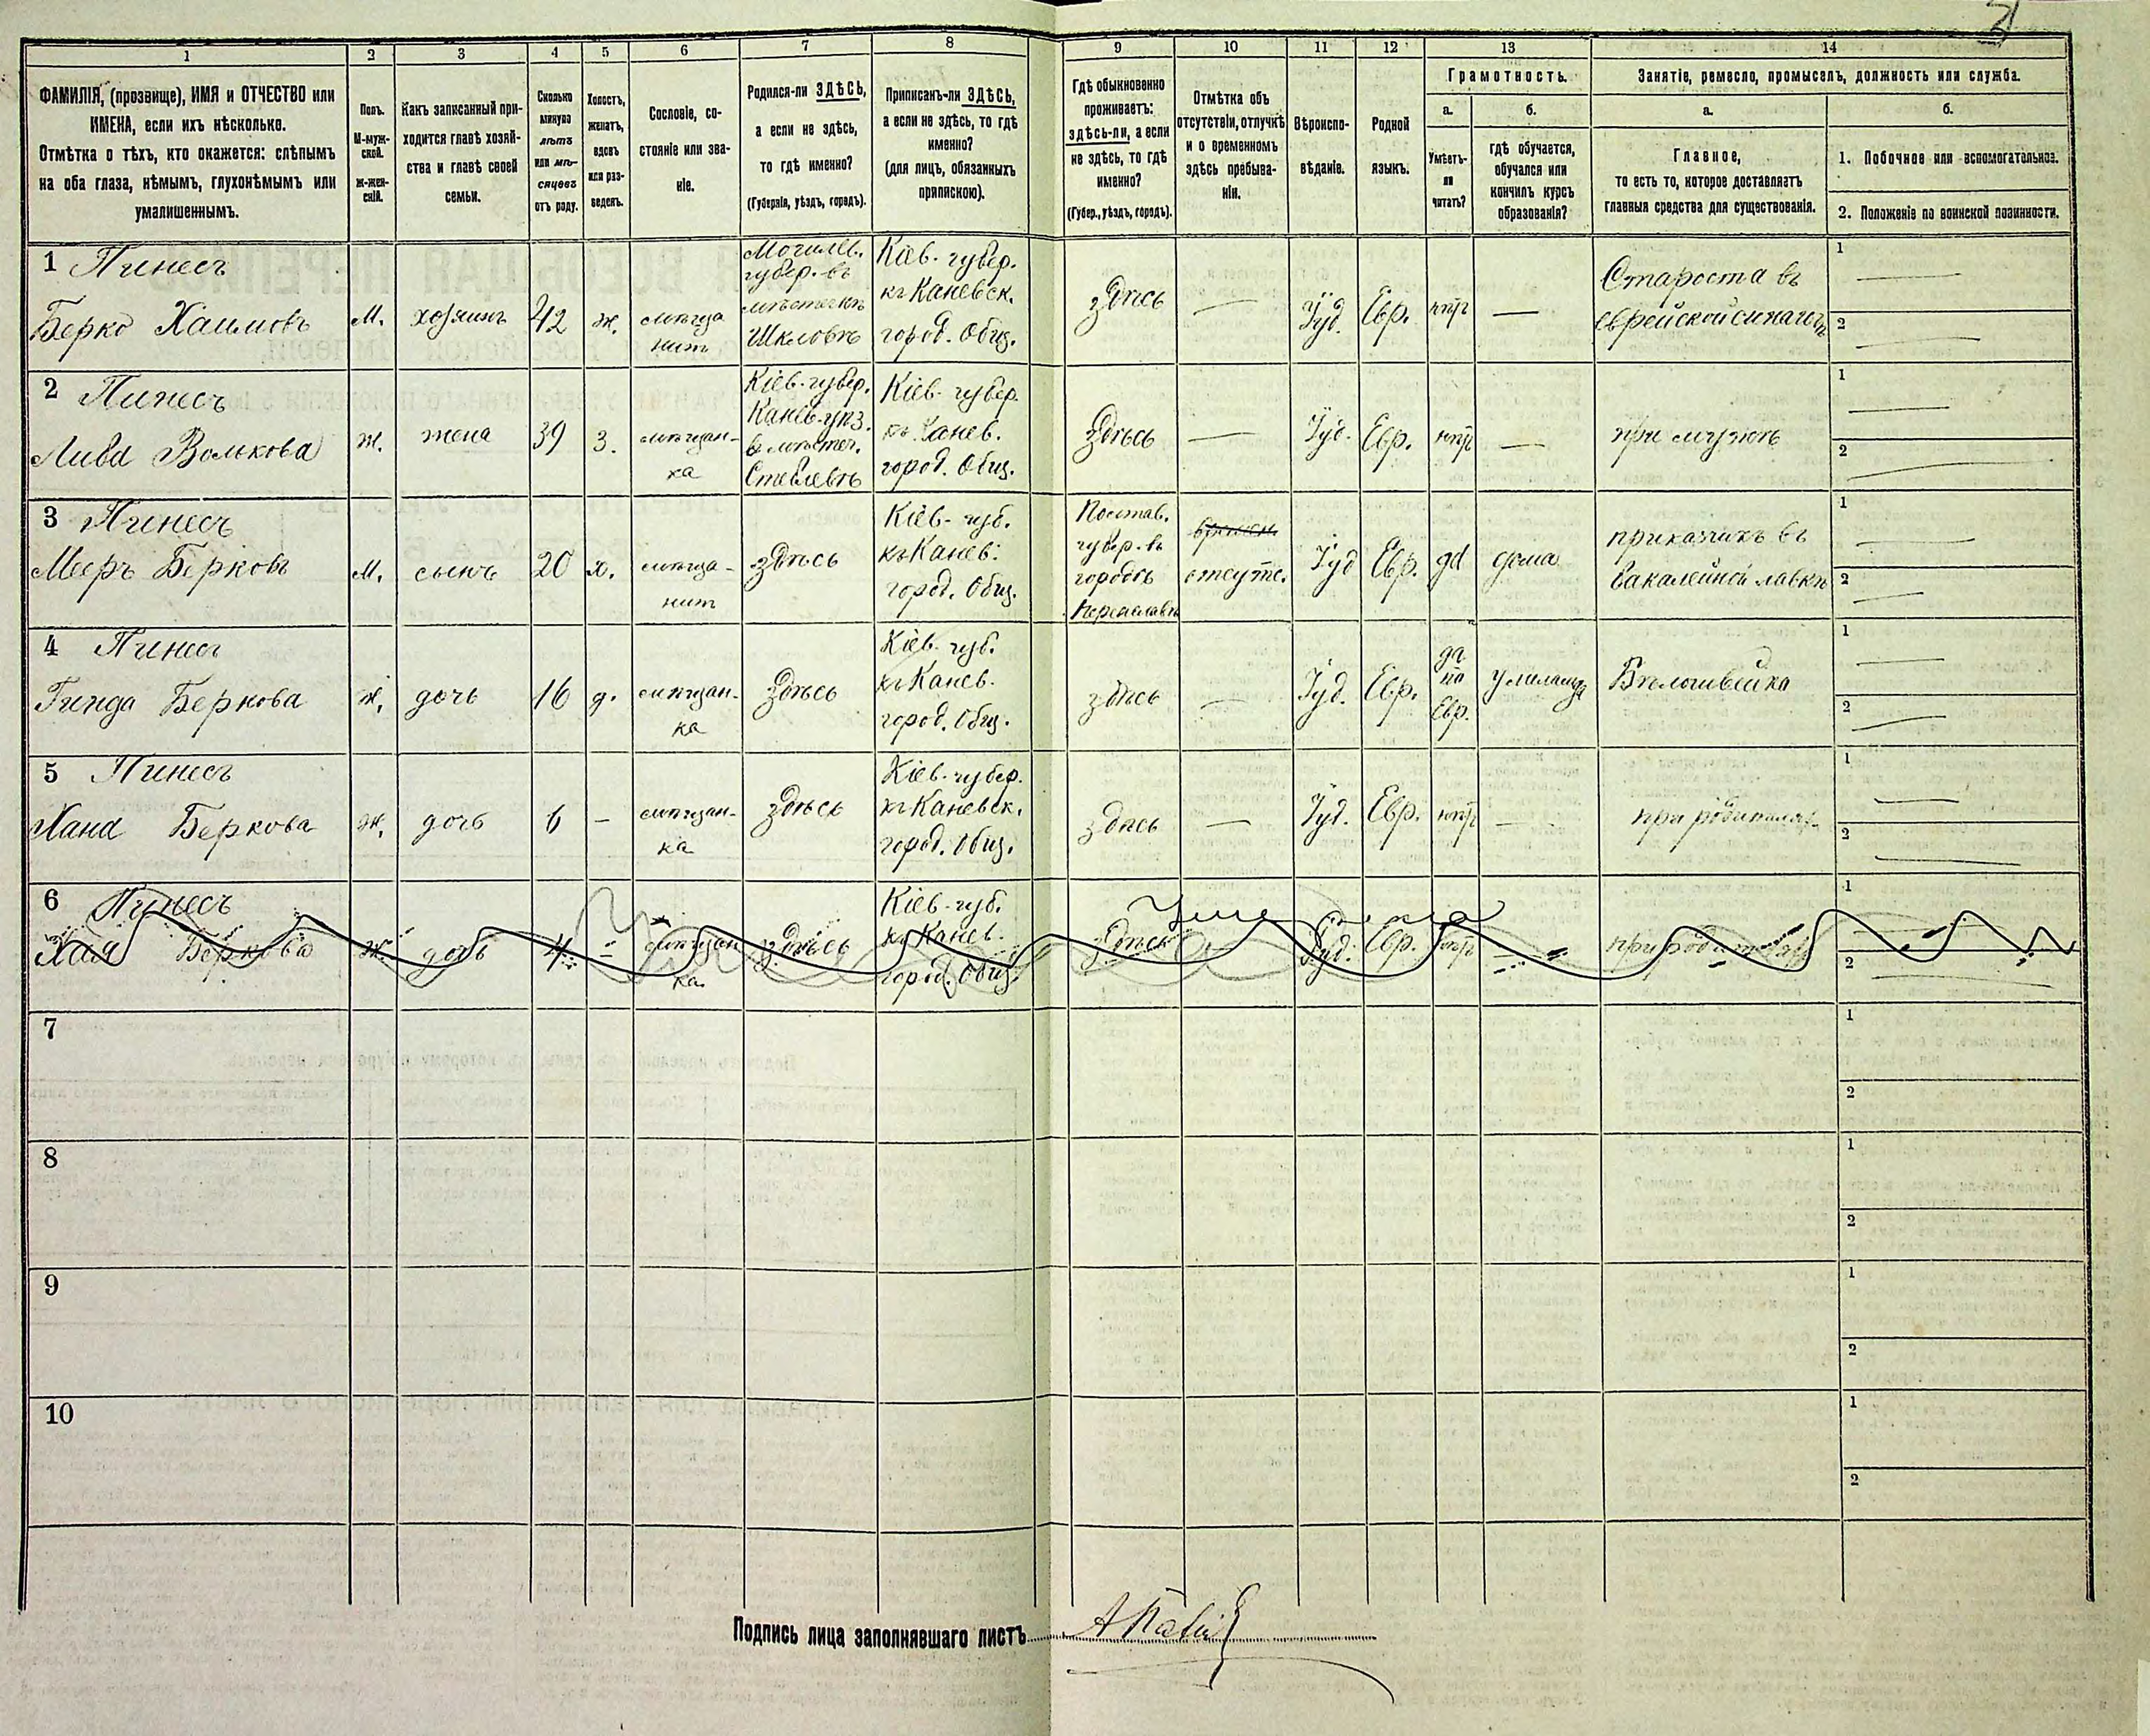 1
2
3
4
5
6
7
8
9
10
11
12
13
14
ФАМИЛІЯ, (прозвище), ИМЯ и ОТЧЕСТВО или
ИМЕНА, если ихъ нѣсколько.
Отмѣтка о тѣхъ, кто окажется: слѣпымъ
на оба глаза, нѣмымъ, глухонѣмымъ или
умалишеннымъ.
Полъ.
М-муж-
ской.
Ж-жен-
скій.
Какъ записанный при-
ходится главѣ хозяй-
ства и главѣ своей
семьи.
Сколько
минуло
лѣтъ
или мѣ-
сяцевъ
отъ роду.
Холостъ,
женатъ,
вдовъ
или раз-
веденъ.
Сословіе, со-
стояніе или зва-
ніе.
Родился-ли ЗДѢСЬ,
а если не здѣсь,
то гдѣ именно?
(Губернія, уѣздъ, городъ).
Приписанъ-ли ЗДѢСЬ,
а если не здѣсь, то гдѣ
именно?
(для лицъ, обязанныхъ
припискою).
Гдѣ обыкновенно
проживаетъ:
здѣсь-ли, а если
не здѣсь, то гдѣ
именно?
(Губер., уѣздъ, городъ).
Отмѣтка объ
отсутствіи, отлучкѣ
и о временномъ
здѣсь пребыва-
ніи.
Вѣроиспо-
вѣданіе.
Родной
языкъ.
Грамотность.
а.
б.
Умѣетъ-
ли
читать?
гдѣ обучается,
обучался или
кончилъ курсъ
образованія?
Занятіе, ремесло, промыселъ, должность или служба.
а.
б.
Главное,
то есть то, которое доставляетъ
главныя средства для существованія.
1. Побочное или вспомогательное.
2. Положеніе по воинской повинности.
1 Пинесъ
Берко Хаимовъ
М.
хозяинъ
42
ж.
мѣща
нинъ
Могилев.
губер. въ
мѣстечкѣ
Шкловѣ
Кіев. губер.
къ Каневск.
город. Общ.
здѣсь
—
Іуд.
Евр.
нѣтъ
—
Староста въ
еврейской синагогѣ
1
2
2 Пинесъ
Лива Волькова
ж.
жена
39
з.
мѣщан-
ка
Кіев. губер.
Канев. уѣз.
в мѣстеч.
Стеблевѣ
Кіев. губер.
къ Канев.
город. Общ.
здѣсь
—
Іуд.
Евр.
нѣтъ
—
при мужѣ
1
2
3 Пинесъ
Мееръ Берковъ
М.
сынъ
20
х.
мѣща-
нинъ
здѣсь
Кіев. губ.
къ Канев.
город. Общ.
Полтав.
губер. въ
городѣ
Переяславѣ
отсутс.
Іуд
Евр.
да
дома
приказчикъ въ
бакалейной лавкѣ
1
2
4 Пинесъ
Гинда Беркова
ж.
дочь
16
д.
мѣщан-
ка
здѣсь
Кіев. губ.
къ Канев.
город. Общ.
здѣсь
—
Іуд.
Евр.
да
по
Евр.
Бѣлошвейка
1
2
5 Пинесъ
Хана Беркова
ж.
дочь
6
—
мѣщан-
ка
здѣсь
Кіев. губер.
къ Каневск.
город. Общ.
здѣсь
—
Іуд.
Евр.
нѣтъ
—
при родителях
1
2
6 Пинесъ
Хая Беркова
ж.
дочь
4
–
мѣщан
ка
здѣсь
Кіев. губ.
къ Канев.
город. Общ.
здѣсь
Умерла
Іуд.
Евр.
нѣтъ
—
при родителях
1
2
7
1
2
8
1
2
9
1
2
10
1
2
Подпись лица заполнявшаго листъ